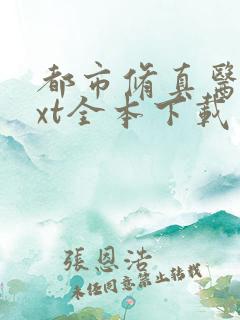 都市脩真醫
xt全本下載
張恩浩
未经同意禁止转载